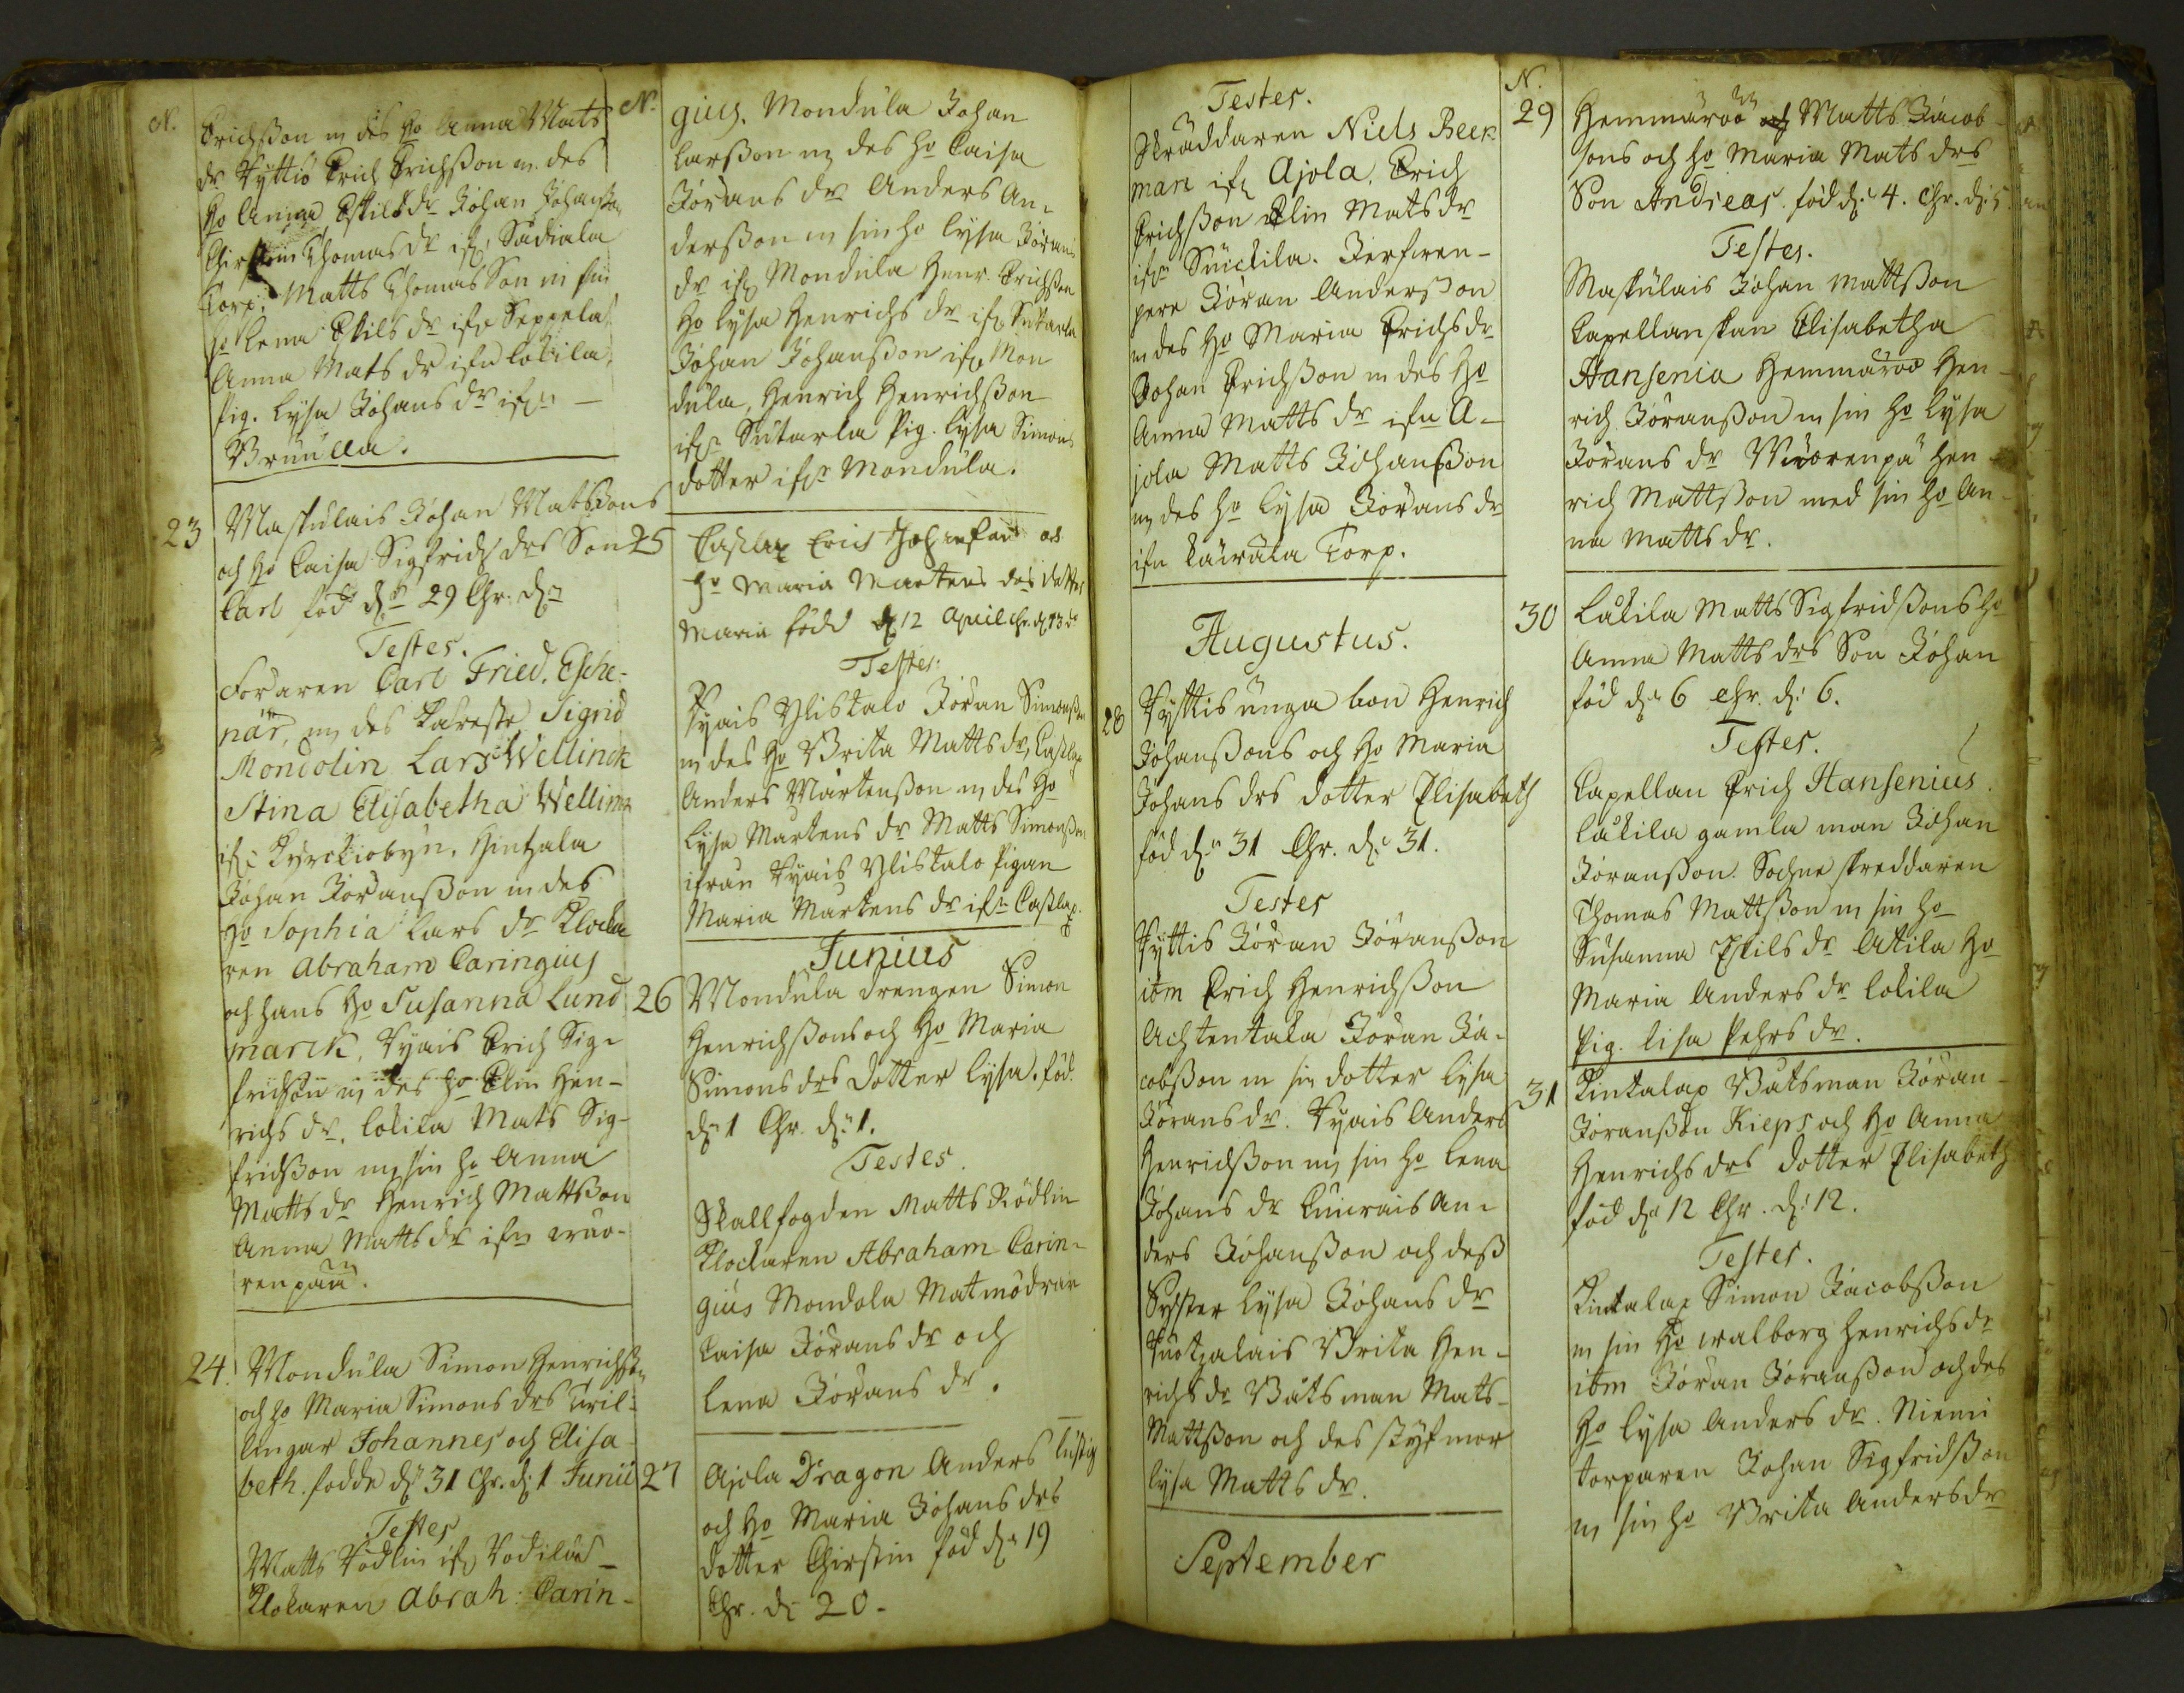 N.
Erichsson m des Ho Anna Mats
dr Tyttis Erich Erichsson m. des
Ho Anna Eskilsdr Johan Johansson
Chirstin Thomasdr ifr Sadiala
Torp. Matts Thomas Son m sin
Ho Lena Eskils dr ifn Seppela
Anna Mats dr ifn Lokila,
Pig. Lysa Johans dr ifrn
23 Maskulais Johan Matssons
och Ho Caisa Sigfrids drs Son
Carl född dn 29 Chr. dn
Testes.
Foraren Carl Fried. Esche-
när, m des Käreste Sigrid
Mondolin Lars Wellinck
Stina Elisabetha Wellinck
ifr Kyrckiobyn, Hintzala
Johan Joransson m des
Ho Sophia Lars dr Klocka
ren Abraham Caringius
och hans Ho Susanna Lund
marck, Tyais Erich Sig-
fridson m des Ho Elin Hen-
richs dr. Lokila Mats Sig-
fridsson m sin Ho Anna
Matts dr Henrich Mattsson
Anna Matts dr ifn wuo-
renpää.
24. Mondula Simon Henrichsson
och Ho Maria Simons drs Tvil-
lingar Johannes och Elisa
beth. födde dn 31 Chr. d. 1 Junii
Testes
Matts Rödlin ifr
Klokaren Abrah. Carin-
N.
gius. Mondula Johan
Larsson m des Ho Caisa
Jörans dr Anders An-
dersson m sin Ho Lysa Jörans
dr ifr Mondula Henr. Erichsson
Ho Lysa Henrichs dr ifr Sutarla
Johan Johansson ifr Mon
dula, Henrich Henrichsson
ifr Sutarla Pig. Lysa Simons
dotter ifrn Mondula.
25 Casklax Erich Johansson och
Ho Maria Mårtens drs dotter
Maria född d 12 April Chr. d 13 do
Testes.
Tyais Ylistalo Jöran Simonsson
m des Ho Brita Matts dr, Casklax
Anders Mårtensson m des Ho
Lysa Mårtens dr Matts Simonsson
ifrån Tyais Ylistalo Pigan
Maria Mårtens dr ifrn Casklax.
Junius
26 Mondula Drengen Simon
Henrichssons och Ho Maria
Simons drs Dotter Lysa. föd.
dn 1 Chr. dn 1.
Testes.
Skallfogden Matts Rödlin
Klockaren Abraham Carin-
gius Mondola Matmödrar
Caisa Jörans dr och
Lena Jörans dr.
27 Ajola Dragon Anders Lustig
och Ho Maria Johans drs
dotter Chirstin föd dn 19
Chr. d. 20.
Testes.
Skräddaren Niels Beck
man ifr Ajola. Erich
Erichsson Elin Matsdr
ifrn Suickila. Jerfwen-
pere Jöran Andersson
m des Ho Maria Erichsdr
Johan Erichsson m des Ho
Anna Matts dr ifn A-
jola Matts Johansson
m des Ho Lysa Jörans dr
ifn Torp.
Augustus.
28 Tyttis unga bon Henrich
Johanssons och Ho Maria
Johans drs dotter Elisabeth
föd dn 31 Chr. d. 31.
Testes
Tyttis Jöran Jöransson
itm Erich Henrichsson
Achtentaka Jöran Ja-
cobsson m sin dotter Lysa
Jöransdr. Tyais Anders
Henrichsson m sin Ho Lena
Johans dr An-
ders Johansson och dess
Syster Lysa Johans dr
Brita Hen-
richs dr Båtsman Mats
Mattsson och des styfmor
Lysa Matts dr.
September
N.
29 Hemmäröö Matts Jacob-
sons och Ho Maria Mats drs
Son Andreas. född d. 4. Chr. d. 5.
Testes.
Maskulais Johan Mattsson
Capellanskan Elisabetha
Hansenia Hemmäröö Hen-
rich Jöransson m sin Ho Lysa
Jörans dr Wuorenpä Hen-
rich Mattsson med sin Ho An-
na Matts dr.
30 Låkila Matts Sigfridssons Ho
Anna Matts drs Son Johan
föd d. 6 Chr. d. 6.
Testes.
Capellan Erich Hansenius.
Låkila gamla man Johan
Jöransson. Sochneskreddaren
Thomas Mattsson m sin Ho
Susanna Eskils dr Ho
Maria Anders dr Lokila
Pig. Lisa Pehrs dr.
31 Kintalax Båtsman Jöran
Jöransson Rieps och Ho Anna
Henrichs drs dotter Elisabeth
föd dn 12 Chr. d. 12.
Testes.
Kintalax Simon Jacobsson
m sin Ho walborg Henrichsdr
itm Jöran Jöransson och des
Ho Lysa Anders dr. Niemi
torparen Johan Sigfridsson
m sin Ho Brita Andersdr